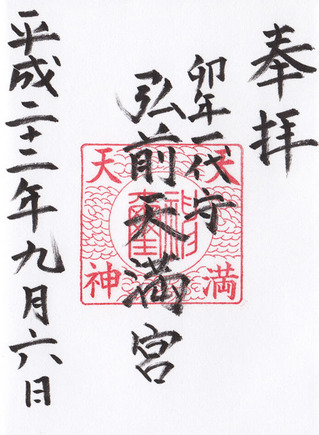 奉拝
卯年一代守
弘前天満宮
平成二十二年九月六日
天満
天神